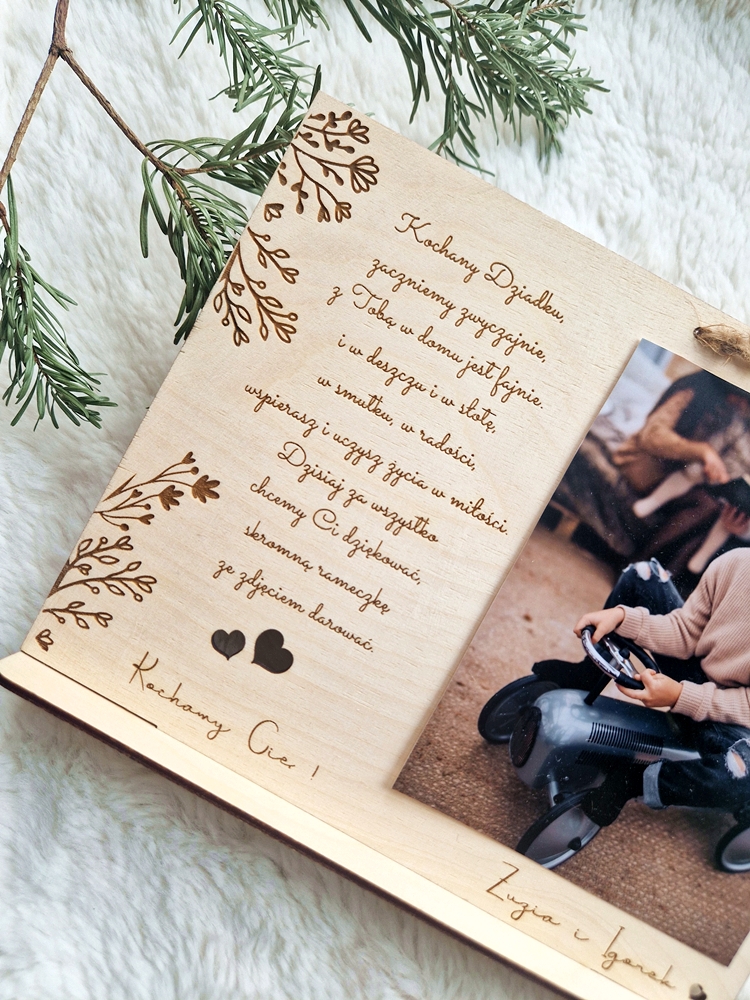 Kochany Dziadku,
zaczniemy zwyczajnie,
z Tobą w domu jest fajnie.
i w deszczu i w słotę,
w smutku, w radości,
wspierasz i uczysz życia w miłości.
Dzisiaj za wszystko
chcemy Ci dziękować,
skromną rameczkę
ze zdjęciem darować.
Kochamy Cię !
Zuzia i Igorek